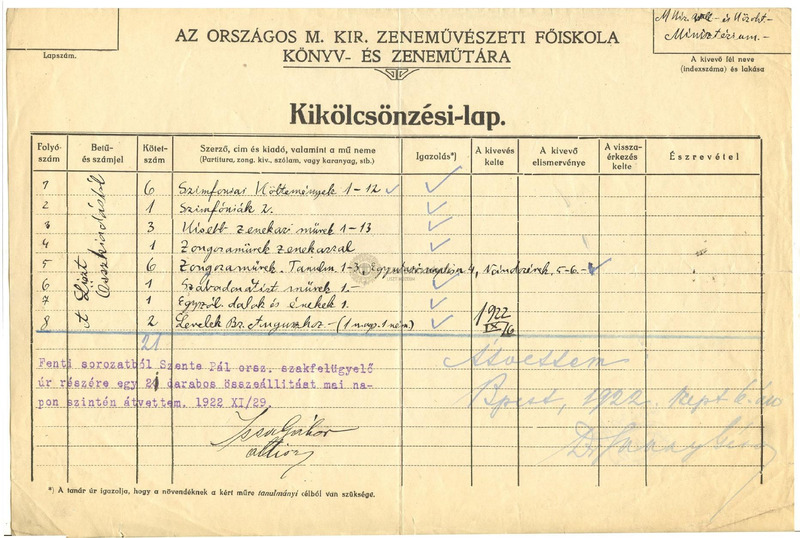 Lapszám.
AZ ORSZÁGOS M. KIR. ZENEMŰVÉSZETI FŐISKOLA
KÖNYV- ÉS ZENEMŰTÁRA
Minisztérium.-
A kivevő fél neve
(indexszáma) és lakása
Kikölcsönzési-lap.
Folyó-szám Betű- és számjel Kötet-szám Szerző, cim és kiadó, valamint a mű neme (Partitura, zong. kiv., szólam, vagy karanyag, stb.) Igazolás*) A kivevés kelte A kivevő elismervénye A vissza-érkezés kelte Észrevétel
A Liszt Összkiadásból
1 6 Szimfoniai Költemények 1-12
2 1 Szimfóniák 2.
3 3 Kisebb zenekari művek 1-13
4 1 Zongoraművek zenekarral
5 6 Zongoraművek. Tanulm. 1-3, 4, Vándorévek. 5-6.-
6 1 művek 1.-
7 1 Egyszól. dalok és énekek 1.
8 2 Levelek Br. Auguszhoz - (1 magy. 1 ném) 1922 IX/6
21
Fenti sorozatból Szente Pál orsz. szakfelügyelő
úr részére egy 21 darabos összeállitást mai na-
pon szintén átvettem. 1922 XI/29.
Átvettem
Bpest, 1922. szept 6.án
Gábor
*) A tanár úr igazolja, hogy a növendéknek a kért műre tanulmányi célból van szüksége.